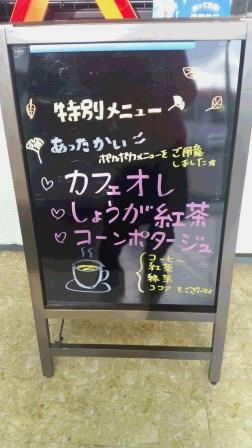 特別メニュー
あったかい
ポカポカメニューをご用意
しました☆
♡ カフェオレ
♡ しょうが紅茶
♡ コーンポタージュ
コーヒー
紅茶
緑茶
ココア もございます